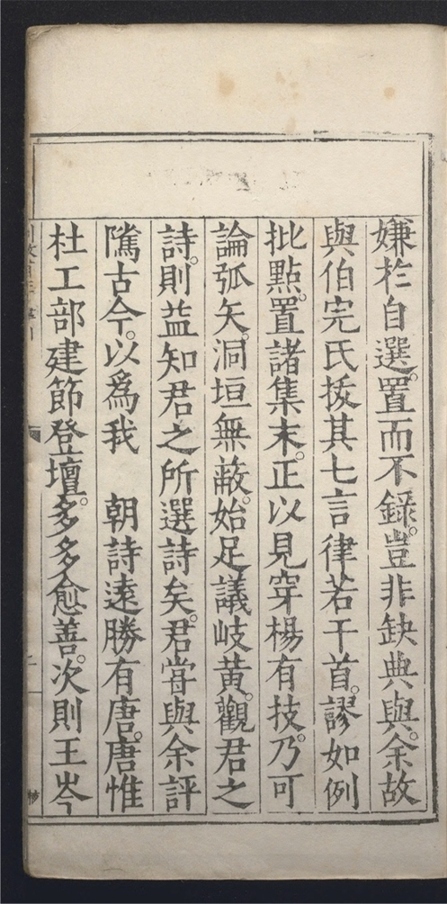 嫌扵自選。置而不錄。豈非缺典與。余故
與伯完氏拔其七言律若干首。謬如例
批點。置諸集末。正以見穿楊有技。乃可
論弧矢。洞垣無蔽。始足議岐黃。觀君之
詩。則益知君之所選詩矣。君嘗與余評
隲古今。以為我　朝詩遠勝有唐。唐惟
杜工部建節登壇。多多愈善。次則王岑